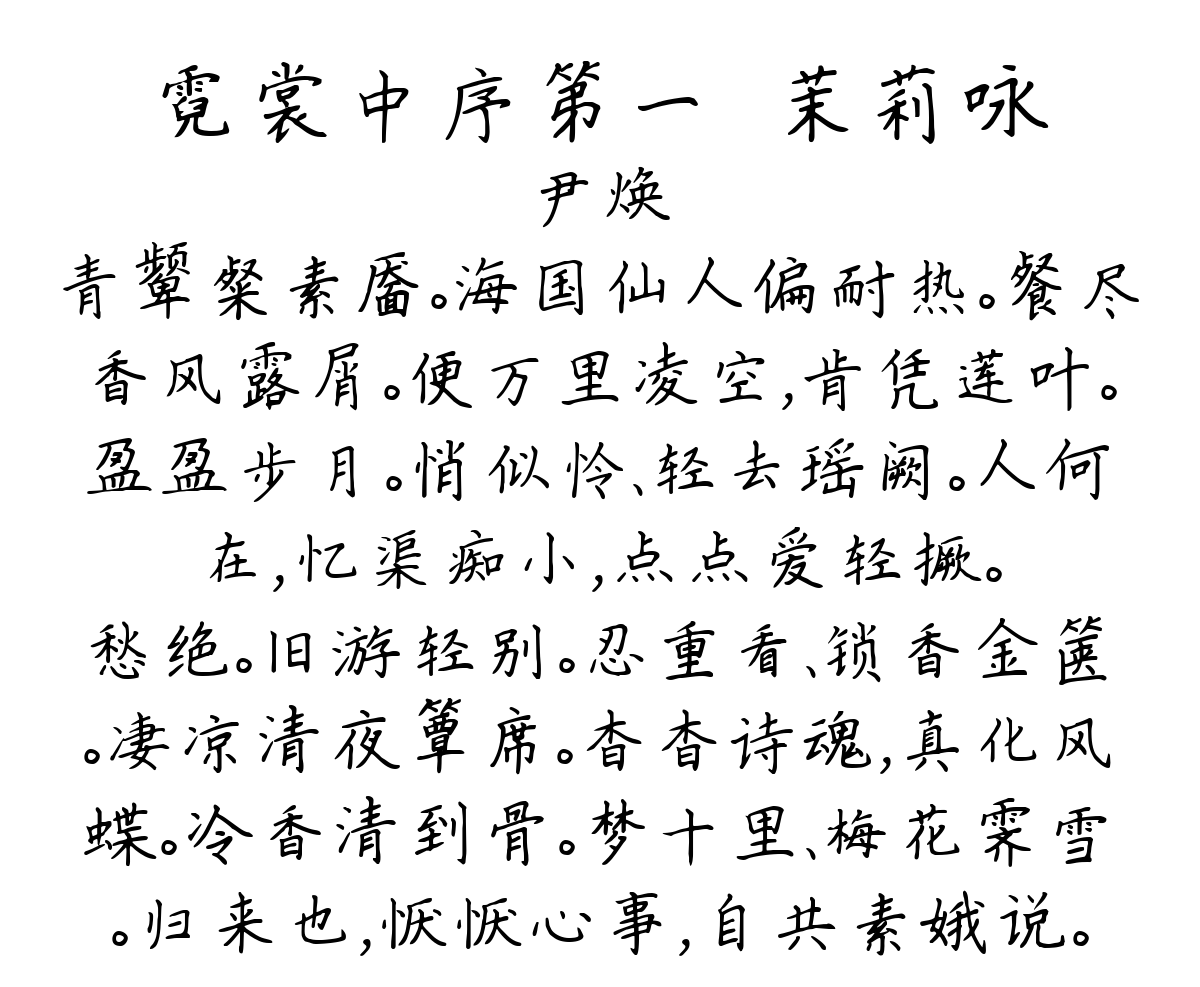 霓裳中序第一 茉莉咏
尹焕
青颦粲素靥。海国仙人偏耐热。餐尽
香风露屑。便万里凌空,肯凭莲叶。
盈盈步月。悄似怜、轻去瑶阙。人何
在,忆渠痴小,点点爱轻撅。
愁绝。旧游轻别。忍重看、锁香金箧
。凄凉清夜簟席。杳杳诗魂,真化风
蝶。冷香清到骨。梦十里、梅花霁雪
。归来也,恹恹心事,自共素娥说。